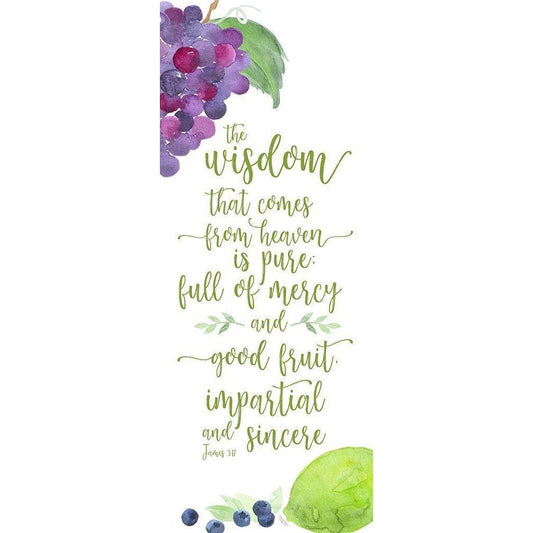 the
wisdom
that comes
from heaven
is pure;
full of mercy
and
good fruit,
impartial
and sincere
James 3:17